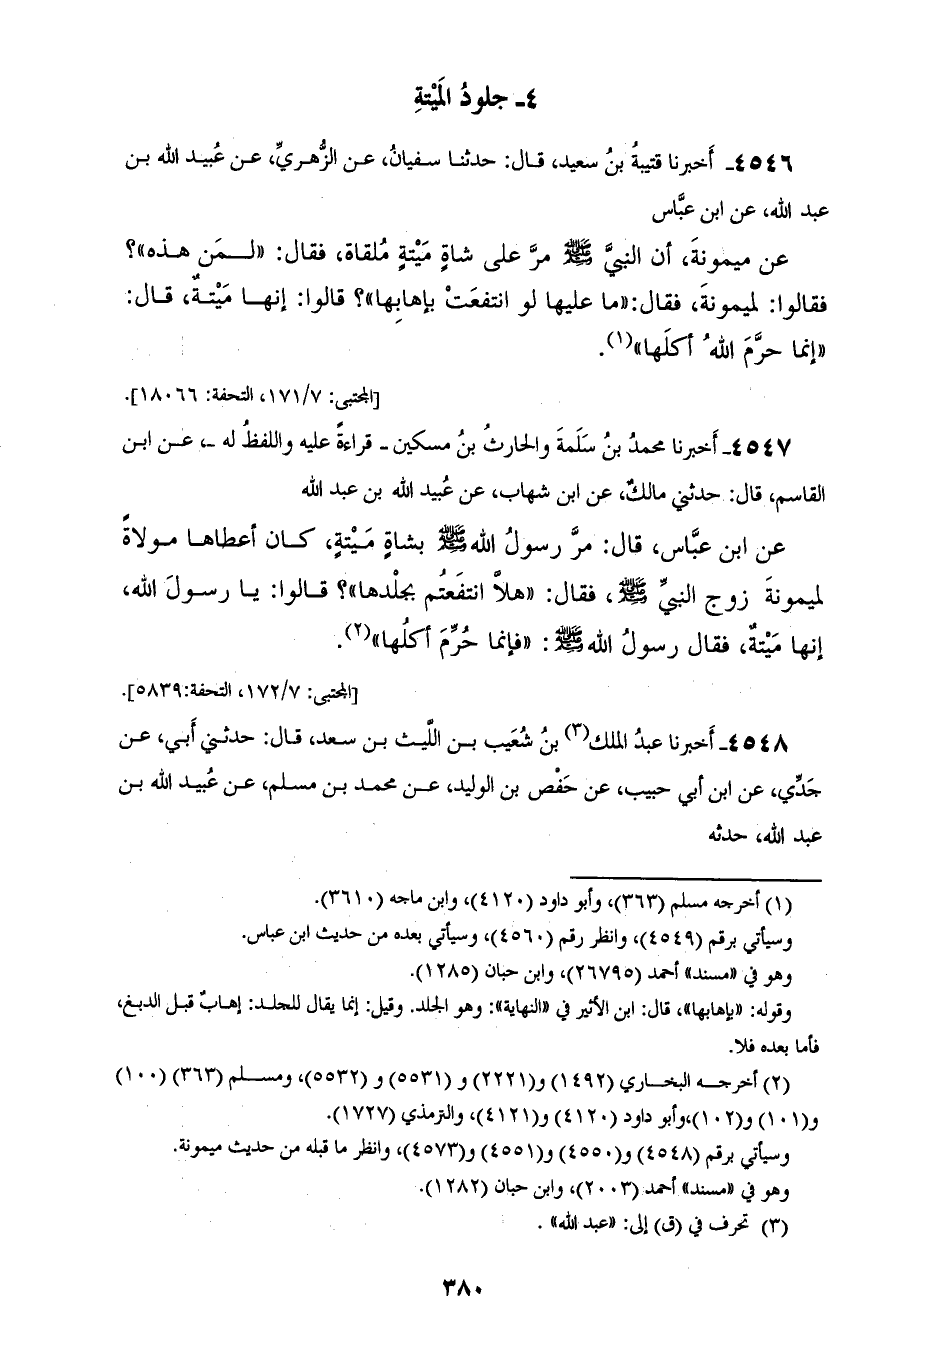 ٤ـ جلودُ المَيْتةِ
٤٥٤٦ـ أَخبرنا قتيبةُ بنُ سعيد، قال: حدثنا سفيانُ، عن الزُّهريِّ، عن عُبيد الله بن
عبد الله، عن ابن عبَّاس
عن ميمونةَ، أن النبيَّ ﷺ مرَّ على شاةٍ مَيْتةٍ مُلقاة، فقال: «لـمَن هذه»؟
فقالوا: لميمونةَ، فقال:«ما عليها لو انتفعَتْ بإهابِها»؟ قالوا: إنها مَيْتةٌ، قال:
«إنما حرَّمَ اللهُ أكلَها»(١).
[المجتبى: ١٧١/٧، التحفة: ١٨٠٦٦].
٤٥٤٧ـ أَخبرنا محمدُ بنُ سَلَمةَ والحارثُ بنُ مسكين ـ قراءةً عليه واللفظُ له ـ، عن ابن
القاسم، قال: حدثني مالكٌ، عن ابن شهاب، عن عُبيد الله بن عبد الله
عن ابن عبَّاس، قال: مرَّ رسولُ الله ﷺ بشاةٍ مَيْتةٍ، كان أعطاها مولاةً
لميمونةَ زوج النبيِّ ﷺ، فقال: «هلاَّ انتفَعتُم بجلْدها»؟ قالوا: يا رسولَ الله،
إنها مَيْتةٌ، فقال رسولُ الله ﷺ: «فإنما حُرِّمَ أكلُها»(٢).
[المجتبى: ١٧٢/٧، التحفة:٥٨٣٩].
٤٥٤٨ـ أَخبرنا عبدُ الملك(٣) بنُ شُعَيب بن اللَّيث بن سعد، قال: حدثني أَبي، عن
جَدِّي، عن ابن أبي حبيب، عن حَفْص بن الوليد، عن محمد بن مسلم، عن عُبيد الله بن
عبد الله، حدثه
(١) أخرجه مسلم (٣٦٣)، وأبو داود (٤١٢٠)، وابن ماجه (٣٦١٠).
وسيأتي برقم (٤٥٤٩)، وانظر رقم (٤٥٦٠)، وسيأتي بعده من حديث ابن عباس.
وهو في «مسند» أحمد (٢٦٧٩٥)، وابن حبان (١٢٨٥).
وقوله: «بإهابها»، قال: ابن الأثير في «النهاية»: وهو الجلد. وقيل: إنما يقال للجلد: إهابٌ قبل الدبغ،
فأما بعده فلا.
(٢) أخرجه البخاري (١٤٩٢) و(٢٢٢١) و (٥٥٣١) و (٥٥٣٢)، ومسلم (٣٦٣) (١٠٠)
و(١٠١) و(١٠٢)،وأبو داود (٤١٢٠) و(٤١٢١)، والترمذي (١٧٢٧).
وسيأتي برقم (٤٥٤٨) و(٤٥٥٠) و(٤٥٥١) و(٤٥٧٣)، وانظر ما قبله من حديث ميمونة.
وهو في «مسند» أحمد (٢٠٠٣)، وابن حبان (١٢٨٢).
(٣) تحرف في (ق) إلى: «عبد الله» .
٣٨٠